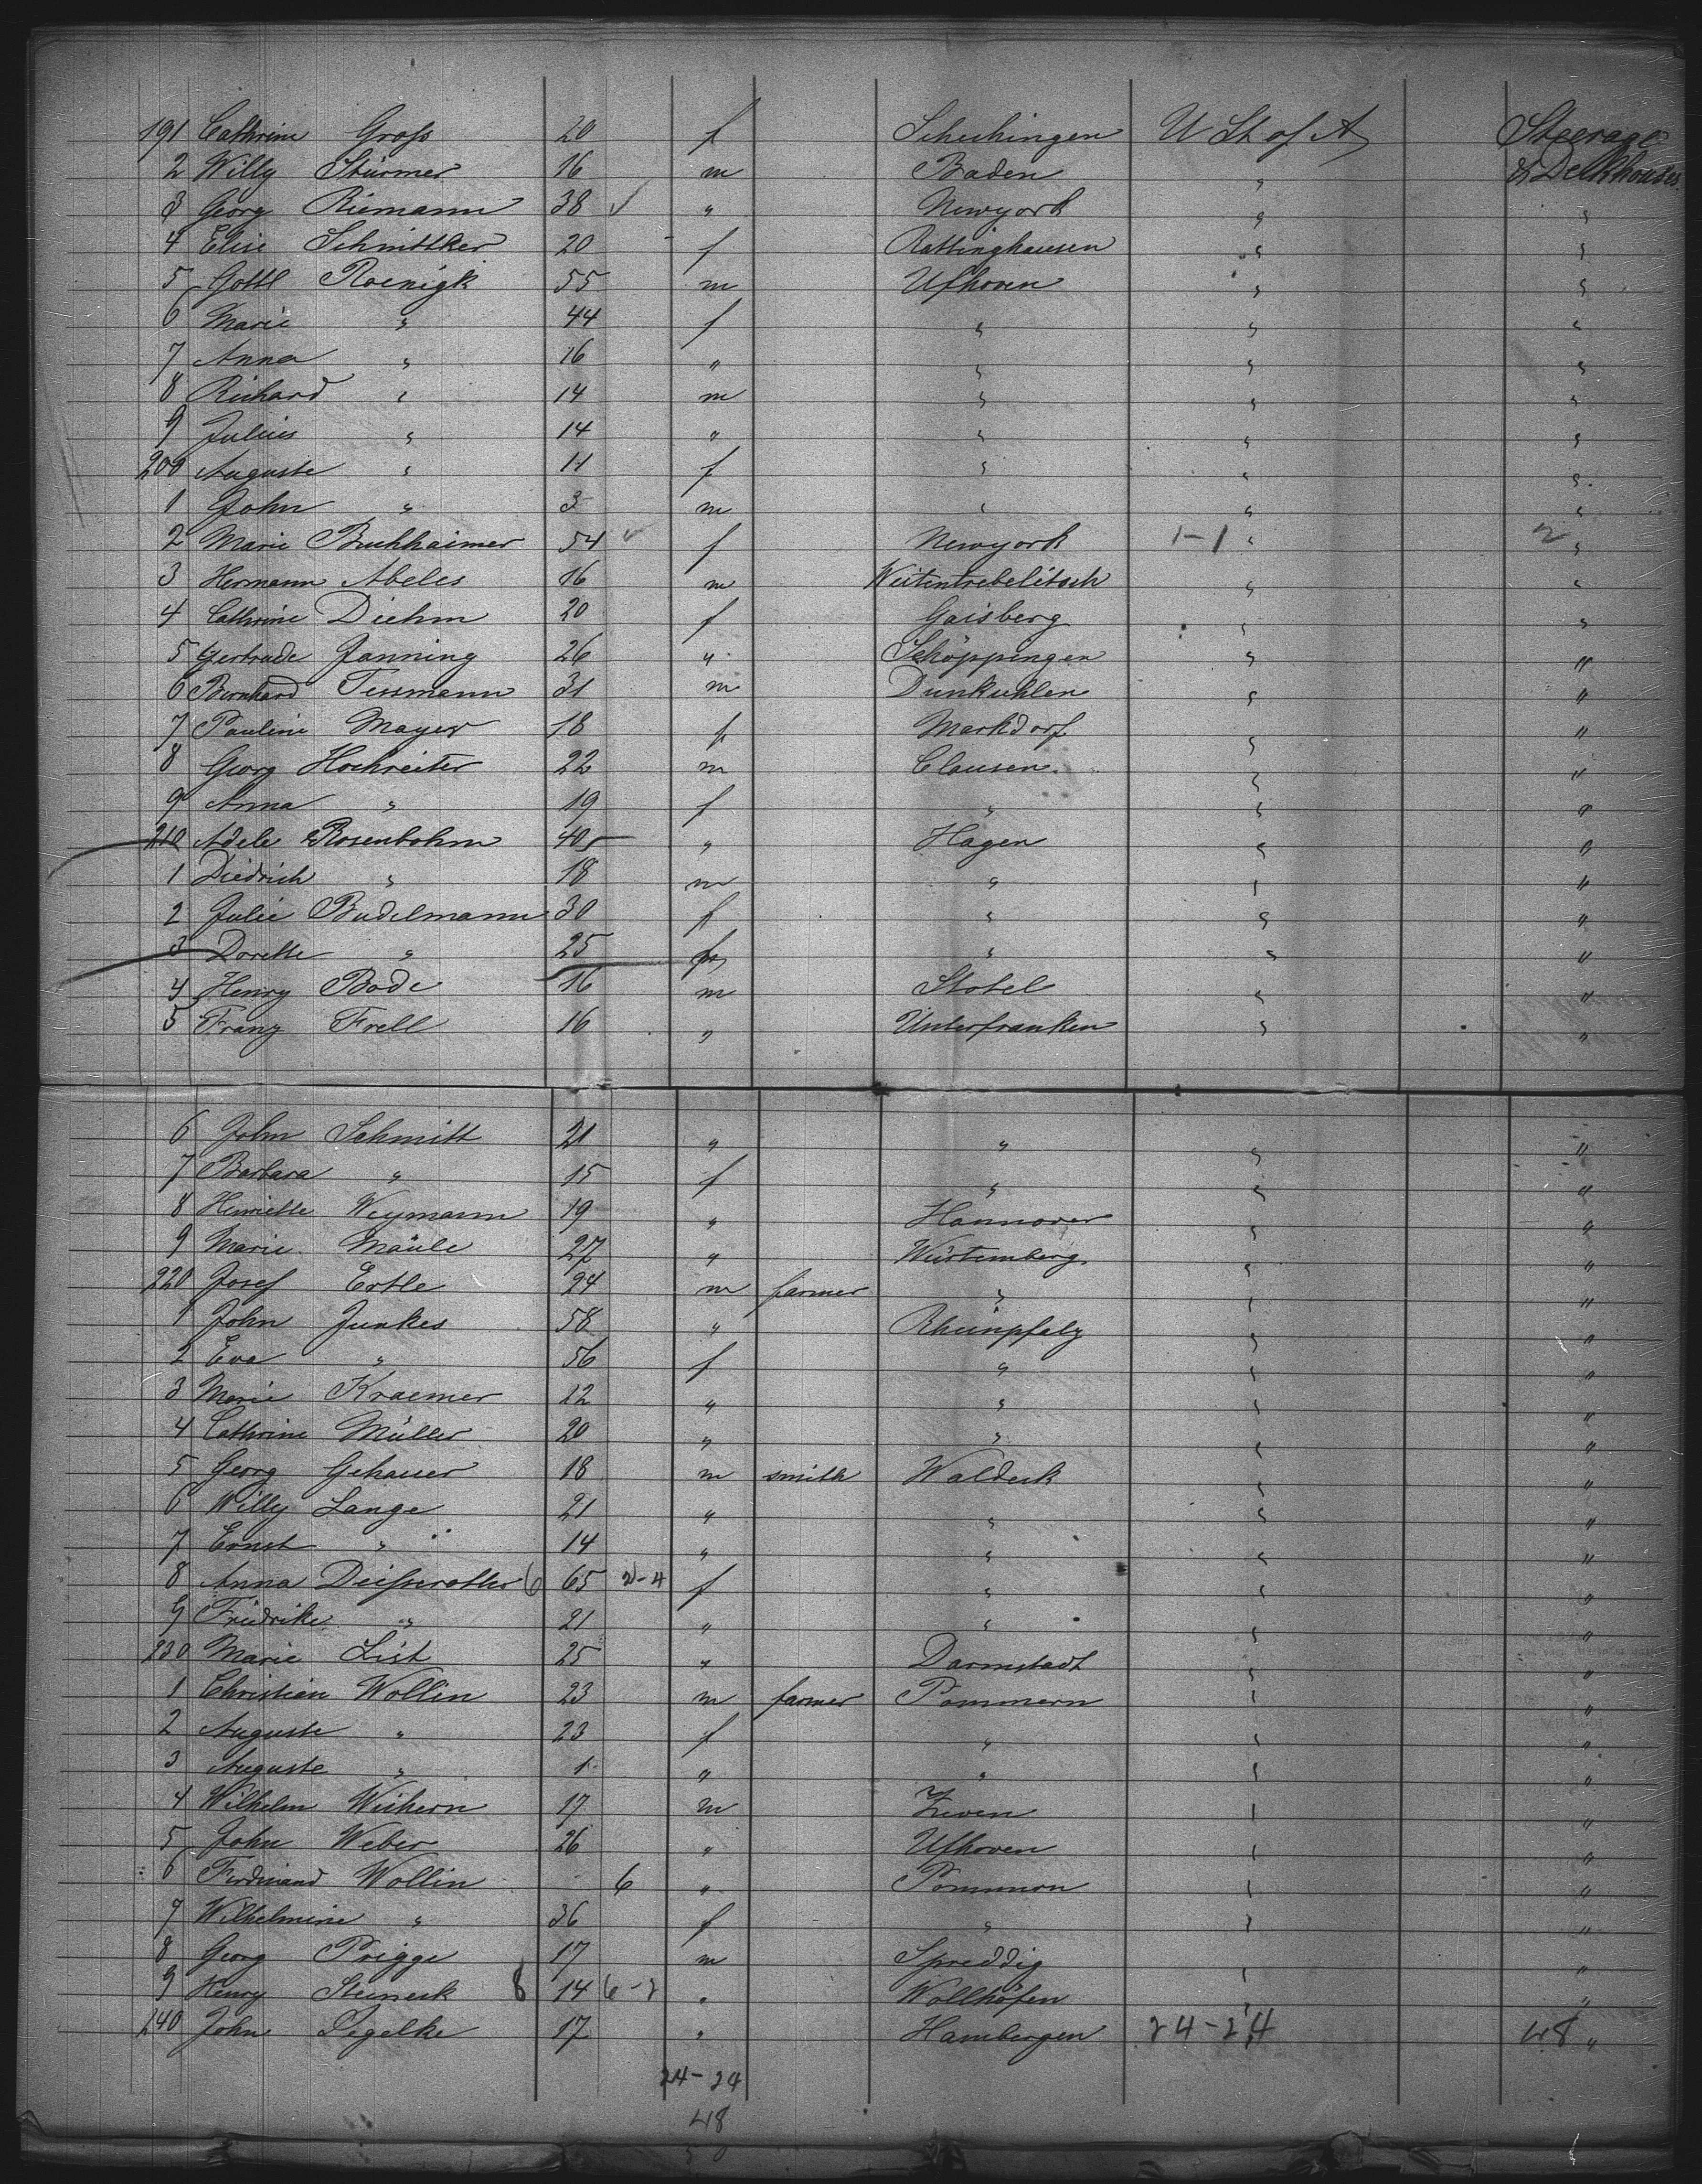 191 Cathrine Gross 20 f Schechingen U St of A Steerage
2 Willy Stürmer 16 m Baden " & Deckhouses.
3 Georg Riemann 38 ✓ " Newyork " "
4 Elise Schnittker 20 f Rattinghausen " "
5 Gottl Roenigk 55 m Ufhoven " "
6 Marie " 44 f " " "
7 Anna " 16 " " " "
8 Richard " 14 m " " "
9 Julius " 14 " " " "
200 Auguste " 11 f " " "
1 John " 3 m " " "
2 Marie Buchhaimer 54 ✓ f Newyork 1-1 " 2 "
3 Hermann Abeles 16 m Weitentrebelitsch " "
4 Cathrine Diehm 20 f Gaisberg " "
5 Gertrude Janning 26 " Schöppingen " "
6 Bernhard Tessmann 31 m Dunkuhlen " "
7 Pauline Mayer 18 f Markdorf " "
8 Georg Hochreiter 22 m Clausen " "
9 Anna " 19 f " " "
210 Adele Rosenbohm 40 " Hagen " "
1 Diedrich " 18 m " " "
2 Julie Budelmann 30 f " " "
3 Dorette " 25 " " "
4 Henry Bode 16 m Stotel " "
5 Franz Frell 16 " Unterfranken " "
6 John Schmitt 21 " " " "
7 Barbara " 15 f " " "
8 Henriette Weymann 19 " Hannover " "
9 Marie Mäule 27 " Würtemberg " "
220 Josef Ertle 24 m farmer " " "
1 John Junkes 58 " Rheinpfalz " "
2 Eva " 56 f " " "
3 Marie Kraemer 12 " " " "
4 Cathrine Müller 20 " " " "
5 Georg Gehauer 18 m smith Waldeck " "
6 Willy Lange 21 " " " "
7 Ernst " 14 " " " "
8 Anna Deisseroth 6 65 2-4 f " " "
9 Friedrike " 21 " " " "
230 Marie List 25 " Darmstadt " "
1 Christian Wollin 23 m farmer Pommern " "
2 Auguste " 23 f " " "
3 Auguste " 1 " " " "
4 Wilhelm Wichern 17 m Zeven " "
5 John Weber 26 " Ufhoven " "
6 Ferdinand Wollin 6 " Pommern " "
7 Wilhelmine " 36 f " " "
8 Georg Prigge 17 m Spreddig "
9 Henry Steineck 8 14 6-2 " Wollhöfen " "
240 John Segelke 17 " Hambergen 24-24 " 48 "
24-24
48